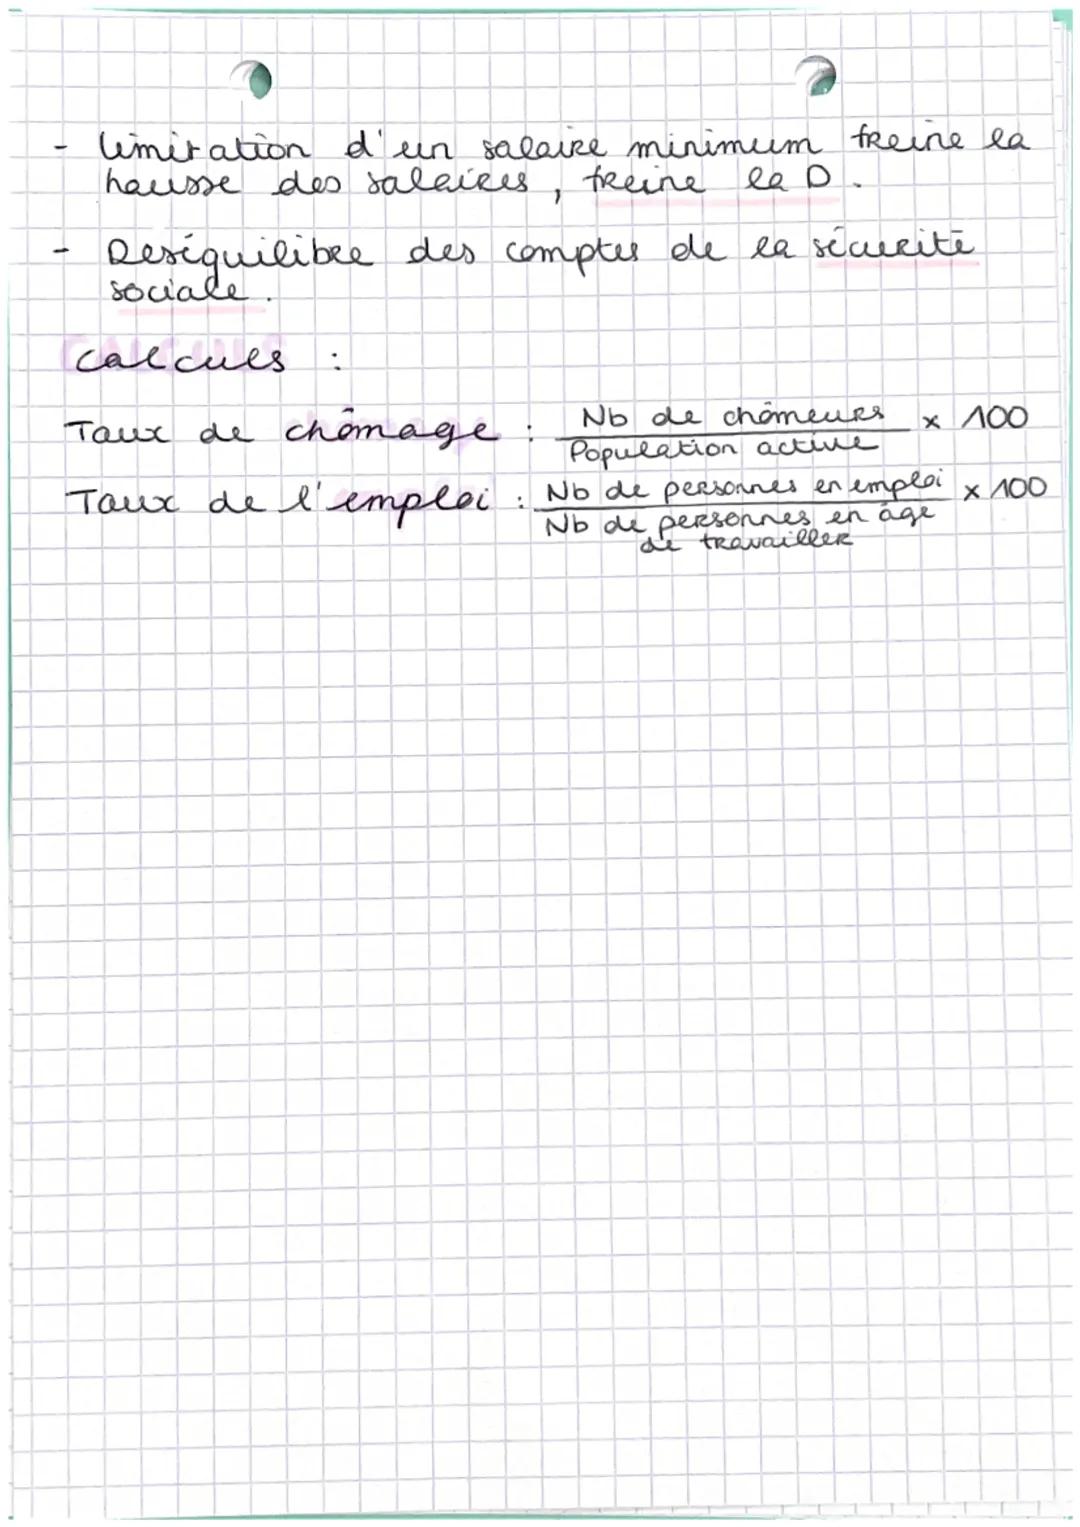 - limitation d'un salaire minimum freine la
hausse des salaires, freine la D.
- Deséquilibre des comptes de la sécurité
sociale.
calculs :
Taux de chômage : Nb de chômeurs x 100
Population active
Taux de l'emploi : Nb de personnes en emploi x 100
Nb de personnes en âge
de travailler